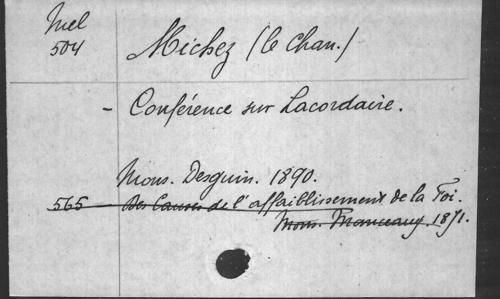 Mel
504
Michez (le Chan.)
- Conférence sur Lacordaire.
Mons. Desguin. 1890.
565 Des Causes de l'affaiblissement de la Foi.
Mons. Manceaux. 1871.